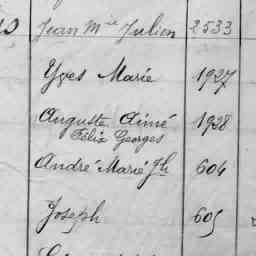 10 Jean Mie Julien 2533
Yves Marie 1927
Auguste Aimé 1928
Félix Georges
André Marie Jh 604
Joseph 605